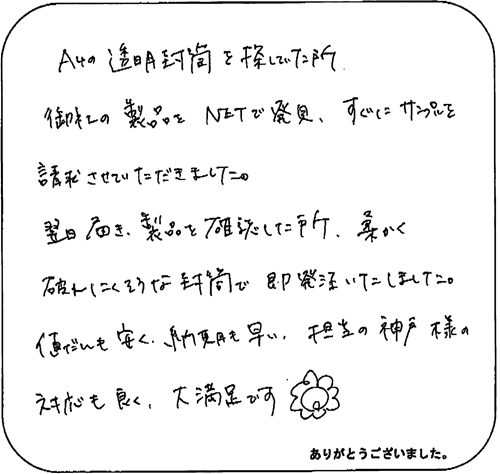 A4の透明封筒を探していた所
御社の製品をNETで発見、すぐにサンプルを
請求させていただきました。
翌日届き、製品を確認した所、柔かく
破れにくそうな封筒で即発注いたしました。
値だんも安く、納期も早い、担当の神戸様の
対応も良く、大満足です
ありがとうございました。